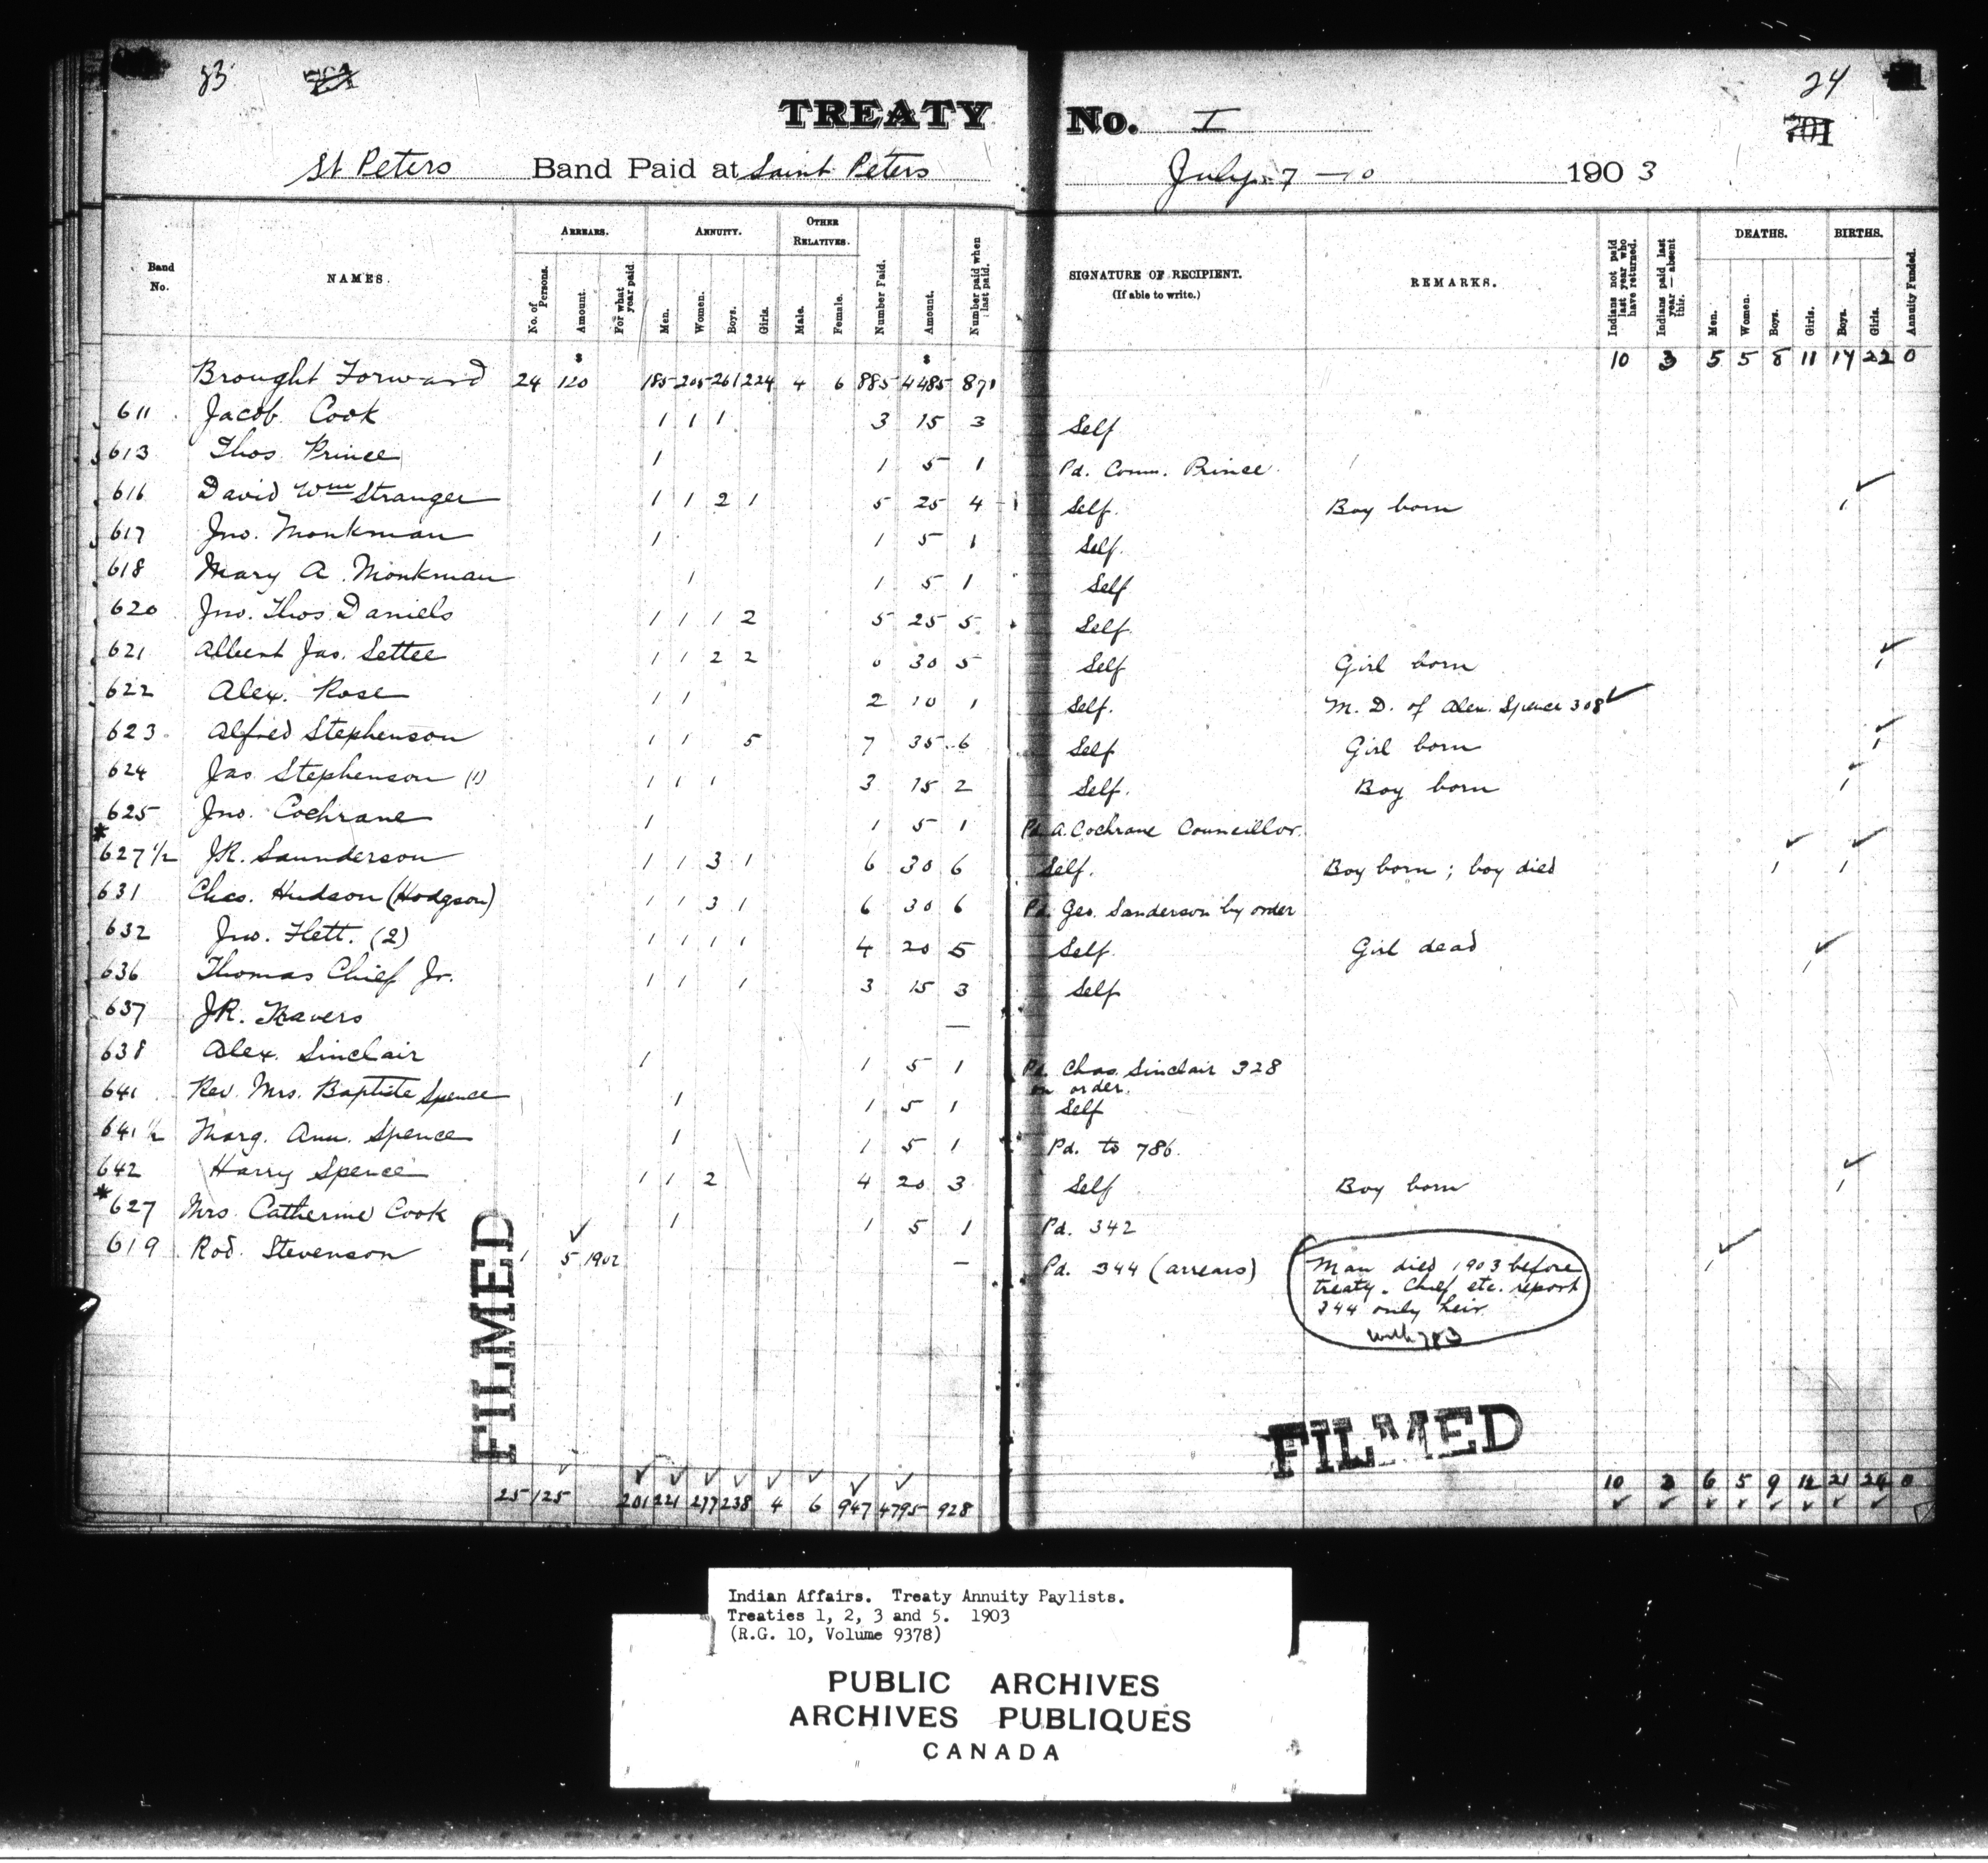 23 24
TREATY No. I
St Peters Band Paid at Saint Peters July 7 - 10 1903
Band No. NAMES. ARREARS. No. of Persons. Amount. For what year paid. ANNUITY. Men. Women. Boys. Girls. OTHER RELATIVES. Male. Female. Number Paid. Amount. Number paid when last paid. SIGNATURE OF RECIPIENT. (If able to write.) REMARKS. Indians not paid last year who have returned. Indians paid last year — absent this. DEATHS. Men. Women. Boys. Girls. BIRTHS. Boys. Girls. Annuity Funded.
$ $
Brought Forward 24 120 185 205 261 224 4 6 885 4485 871 10 3 5 5 8 11 14 22 0
611 Jacob Cook 1 1 1 3 15 3 Self
613 Thos. Prince 1 1 5 1 Pd. Coun. Prince
616 David Wm Stranger 1 1 2 1 5 25 4 Self. Boy born 1
617 Jno. Monkman 1 1 5 1 Self.
618 Mary A. Monkman 1 1 5 1 Self
620 Jno. Thos Daniels 1 1 1 2 5 25 5 Self
621 Albert Jas. Settee 1 1 2 2 6 30 5 Self Girl born 1
622 Alex. Rose 1 1 2 10 1 Self. M. D. of Alex. Spence 308
623 Alfred Stephenson 1 1 5 7 35 6 Self Girl born 1
624 Jas Stephenson (1) 1 1 1 3 15 2 Self. Boy born 1
625 Jno. Cochrane 1 1 5 1 Pd. A. Cochrane Councillor.
*627 1/2 JR. Saunderson 1 1 3 1 6 30 6 Self. Boy born; boy died 1 1
631 Chas. Hudson (Hodgson) 1 1 3 1 6 30 6 Pd. Geo. Sanderson by order
632 Jno. Flett. (2) 1 1 1 1 4 20 5 Self Girl dead 1
636 Thomas Chief Jr. 1 1 1 3 15 3 Self
637 JR. Travers —
638 Alex. Sinclair 1 1 5 1 Pd. Chas. Sinclair 328
on order.
641 Rev. Mrs. Baptiste Spence 1 1 5 1 Self
641 1/2 Marg. Ann. Spence 1 1 5 1 Pd. to 786.
642 Harry Spence 1 1 2 4 20 3 Self Boy born 1
*627 Mrs. Catherine Cook 1 1 5 1 Pd. 342
619 Rod. Stevenson 1 5 1902 — Pd. 344 (arrears) Man died 1903 before 1
treaty. Chief etc. report
344 only heir
with 783
FILMED
FILMED
25 125 201 221 277 238 4 6 947 4795 928 10 3 6 5 9 12 21 24 0
Indian Affairs. Treaty Annuity Paylists.
Treaties 1, 2, 3 and 5. 1903
(R.G. 10, Volume 9378)
PUBLIC ARCHIVES
ARCHIVES PUBLIQUES
CANADA